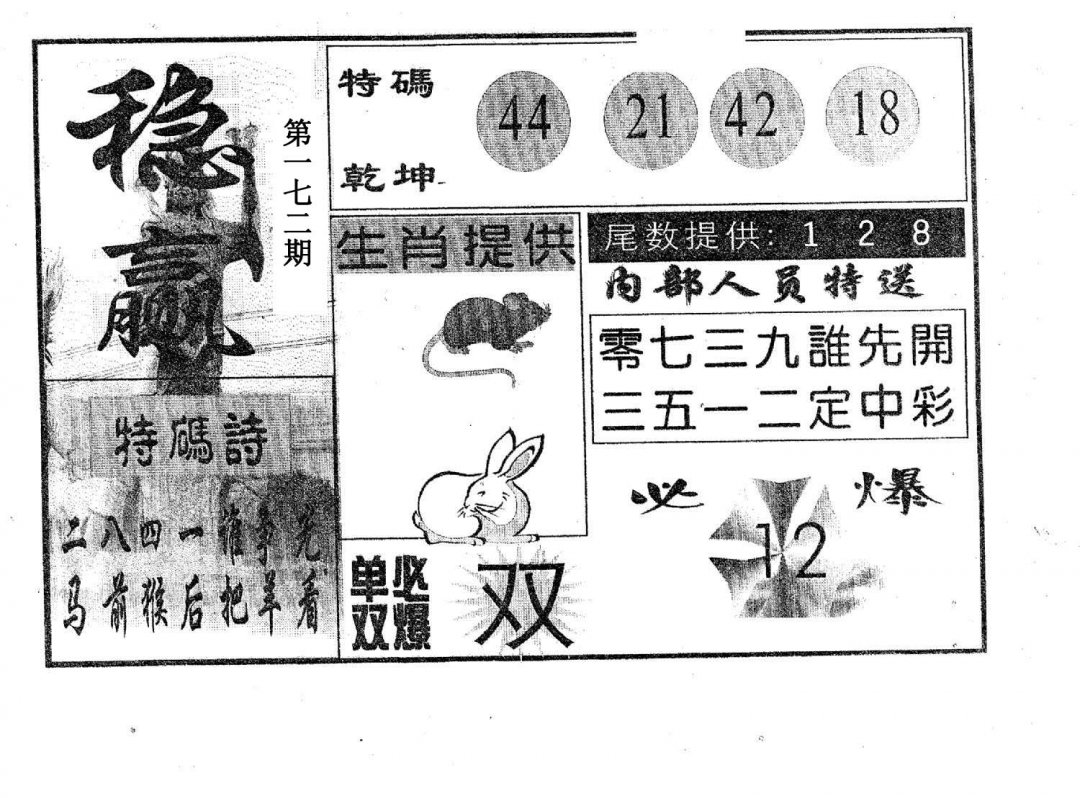 稳赢
第一七二期
特碼
乾坤
44 21 42 18
生肖提供
尾数提供: 1 2 8
内部人员特送
零七三九誰先開
三五一二定中彩
特碼詩
二八四一誰爭先
马前猴后把羊看
单双必爆
双
必爆
12